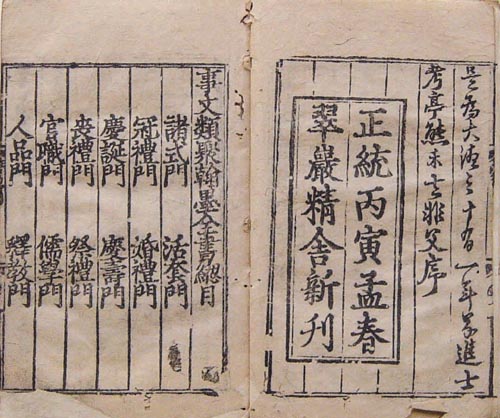 是為大德之十有一年前進士
考亭熊禾去非父序
正統丙寅孟春
翠巖精舍新刊
事文類聚翰墨全書緫目
諸式門 活套門
冠禮門 婚禮門
慶誕門 慶壽門
喪禮門 祭禮門
官職門 儒學門
人品門 釋教門